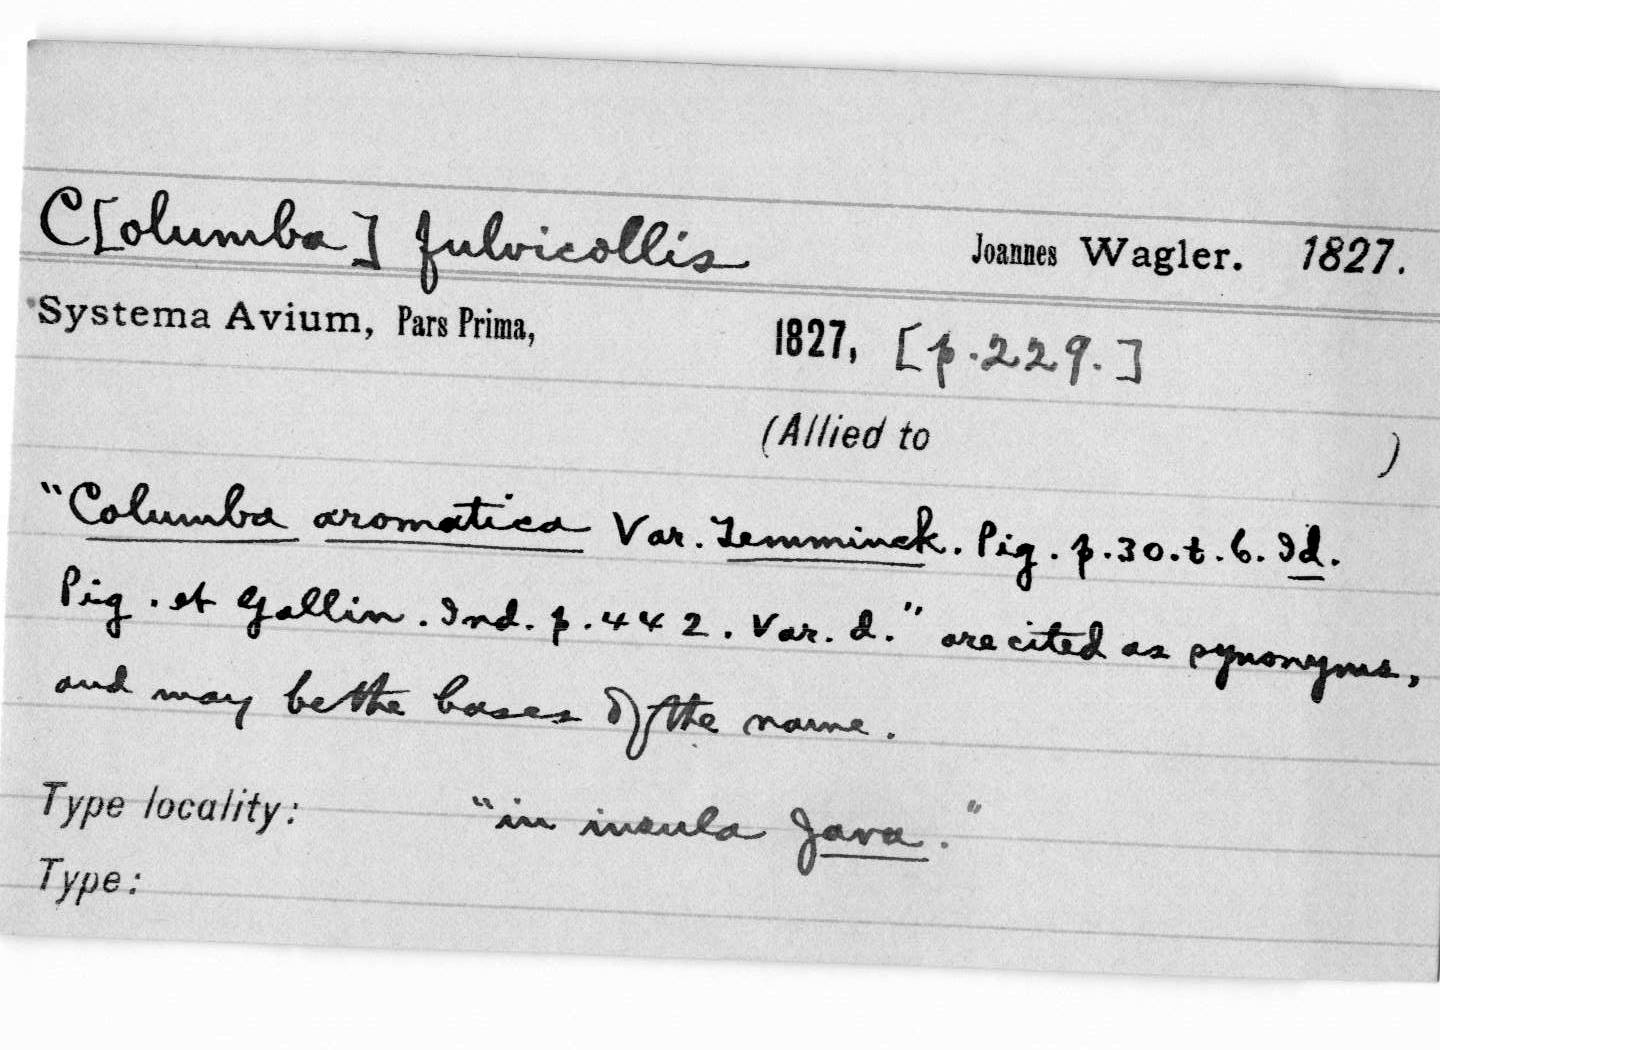 C[olumba] fulvicollis Joannes Wagler. 1827.
Systema Avium, Pars Prima, 1827, [p.229.]
(Allied to )
"Columba aromatica Var. Temminck. Pig. p.30.t.6. Id.
Pig. et Gallin. Ind. p.442. Var. d." are cited as synonyms,
and may be the bases of the name.
Type locality: "in insula Java."
Type: